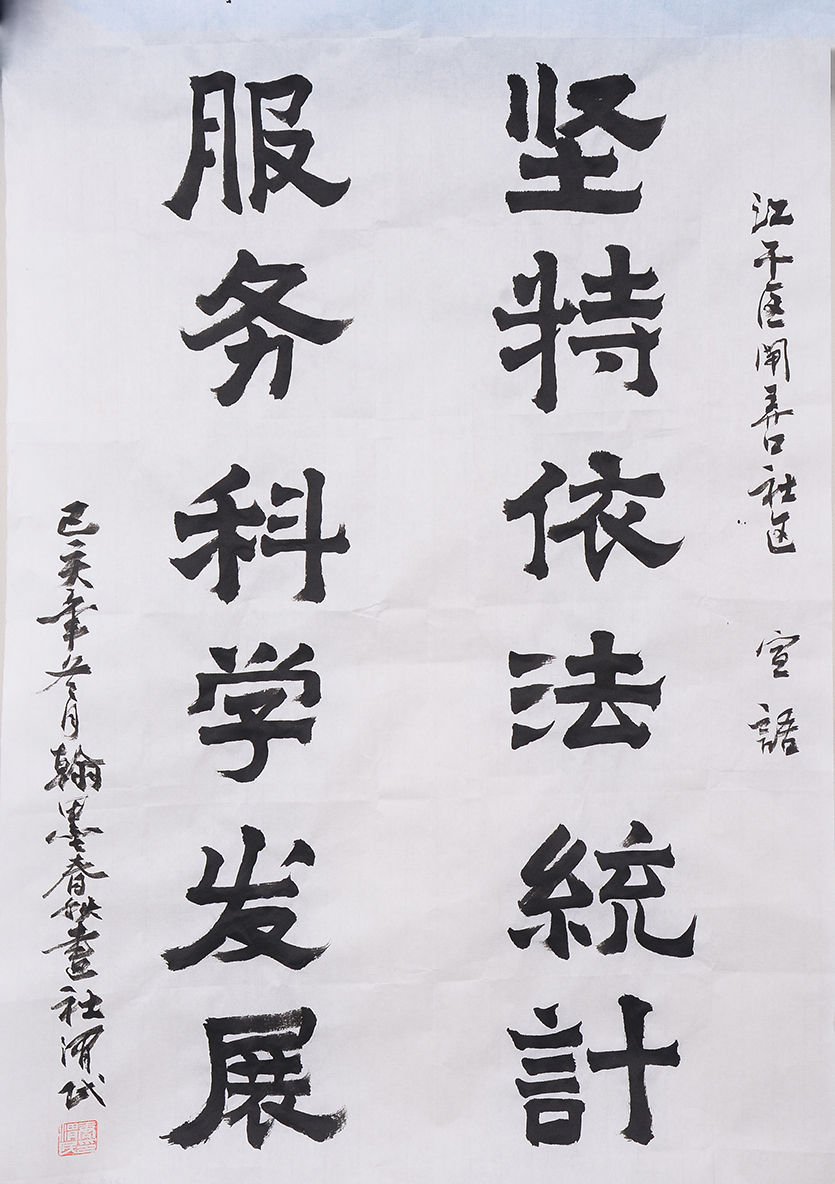 江干区闸弄口社区 宣語
坚特依法統計
服务科学发展
己亥年冬月翰墨春秋書画社渭民